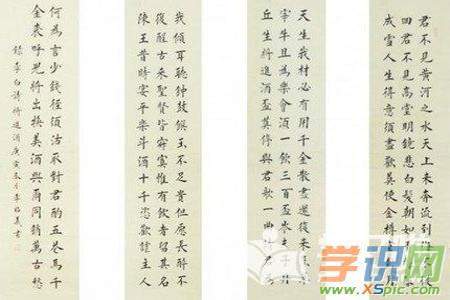 君不見黃河之水天上來奔流到海不復
回君不見高堂明鏡悲白髮朝如青
成雪人生得意須盡歡莫使金樽
天生我材必有用千金散盡還復來
宰牛且為樂會須一飲三百盃岑夫子丹
丘生將進酒盃莫停與君歌一曲請君為
我傾耳聽鐘鼓饌玉不足貴但願長醉不
復醒古來聖賢皆寂寞惟有飲者留其名
陳王昔時宴平樂斗酒十千恣歡謔主人
何為言少錢徑須沽取對君酌五花馬千
金裘呼兒將出換美酒與爾同銷萬古愁
錄李白詩將進酒庚寅冬月李
学识网